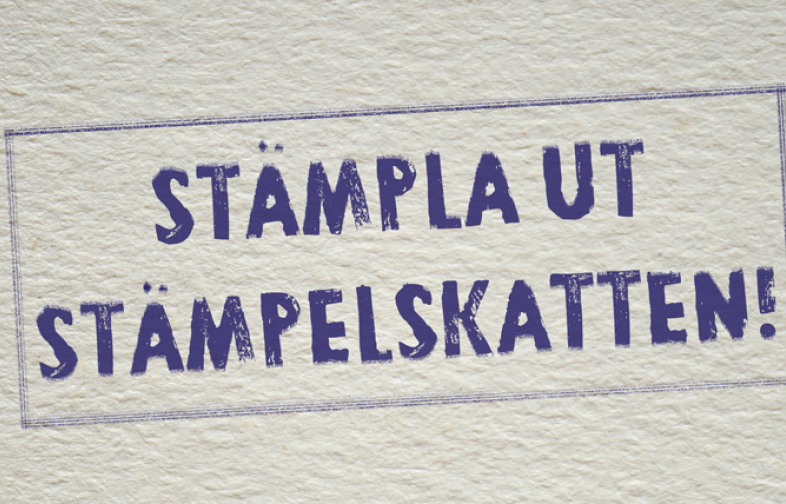 STÄMPLA UT
STÄMPELSKATTEN!